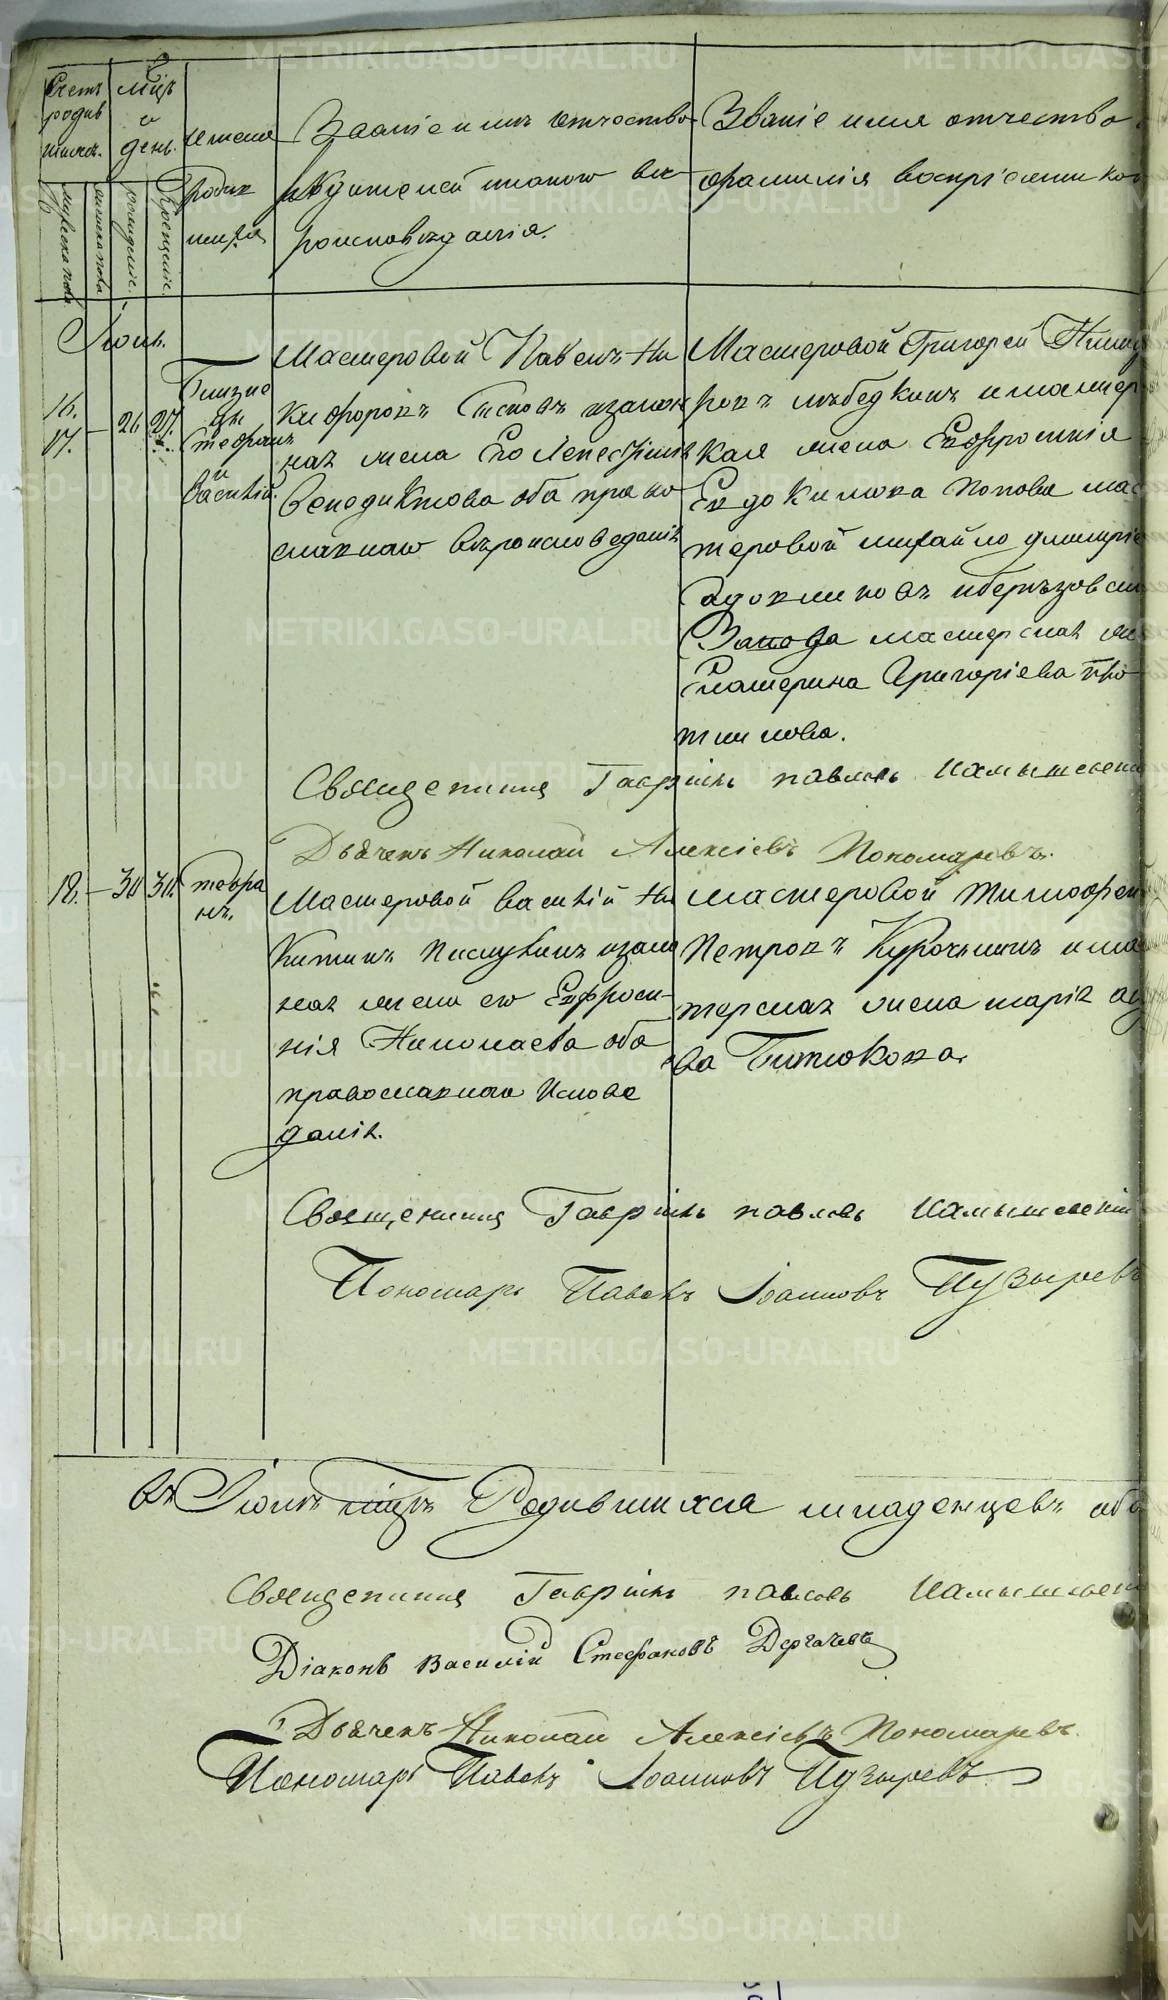 Счетъ родив шихся.
мѣсяцъ и день.
имена родив шихся
Званіе имя отчество
родителей и какого вѣ
роисповѣданія.
Званіе имя отчество
фамилія воспріемников
мужеска пола
женска пола
рожденіе.
Крещеніе.
Іюнь.
16.
17.
26 27.
Близне
цы
Стефанъ
и
Василій.
Мастеровой Павелъ Ни
кифоровъ Тсковъ и закон
ная жена Его
Венедиктова оба право
славнаго вѣроисповеданія
Мастеровой Григорей
ровъ Лѣбедкинъ и мастер
ская жена Евфросинія
Евдокимова Попова мас
теровой михайло дмитріе
и берѣзовск
Завода мастерская же
Екатерина Григоріева
Священникъ Гавріилъ павловъ Камышевски
Дьячекъ Николай Алексіевъ Пономаревъ.
18. 30 30.
стефа
нъ.
Мастеровой Василій Ни
китинъ и зако
ная жена его Евфроси-
нія Николаева оба
православнаго Испове
данія.
мастеровой Тимофей
Петровъ Курочкинъ и ма
терская жена марія
ва Битюкова.
Священникъ Гавріилъ павловъ Камышевскій
Пономарь Павелъ Іоанновъ Пузыревъ
Въ Іюнѣ мцѣ Родившихся младенцевъ обо
Священникъ Гавріилъ павловъ Камышевск
Діаконъ Василій Стефановъ Дергачевъ
Дьячекъ Николай Алексіевъ Пономаревъ.
Пономарь Павелъ Іоанновъ Пузыревъ